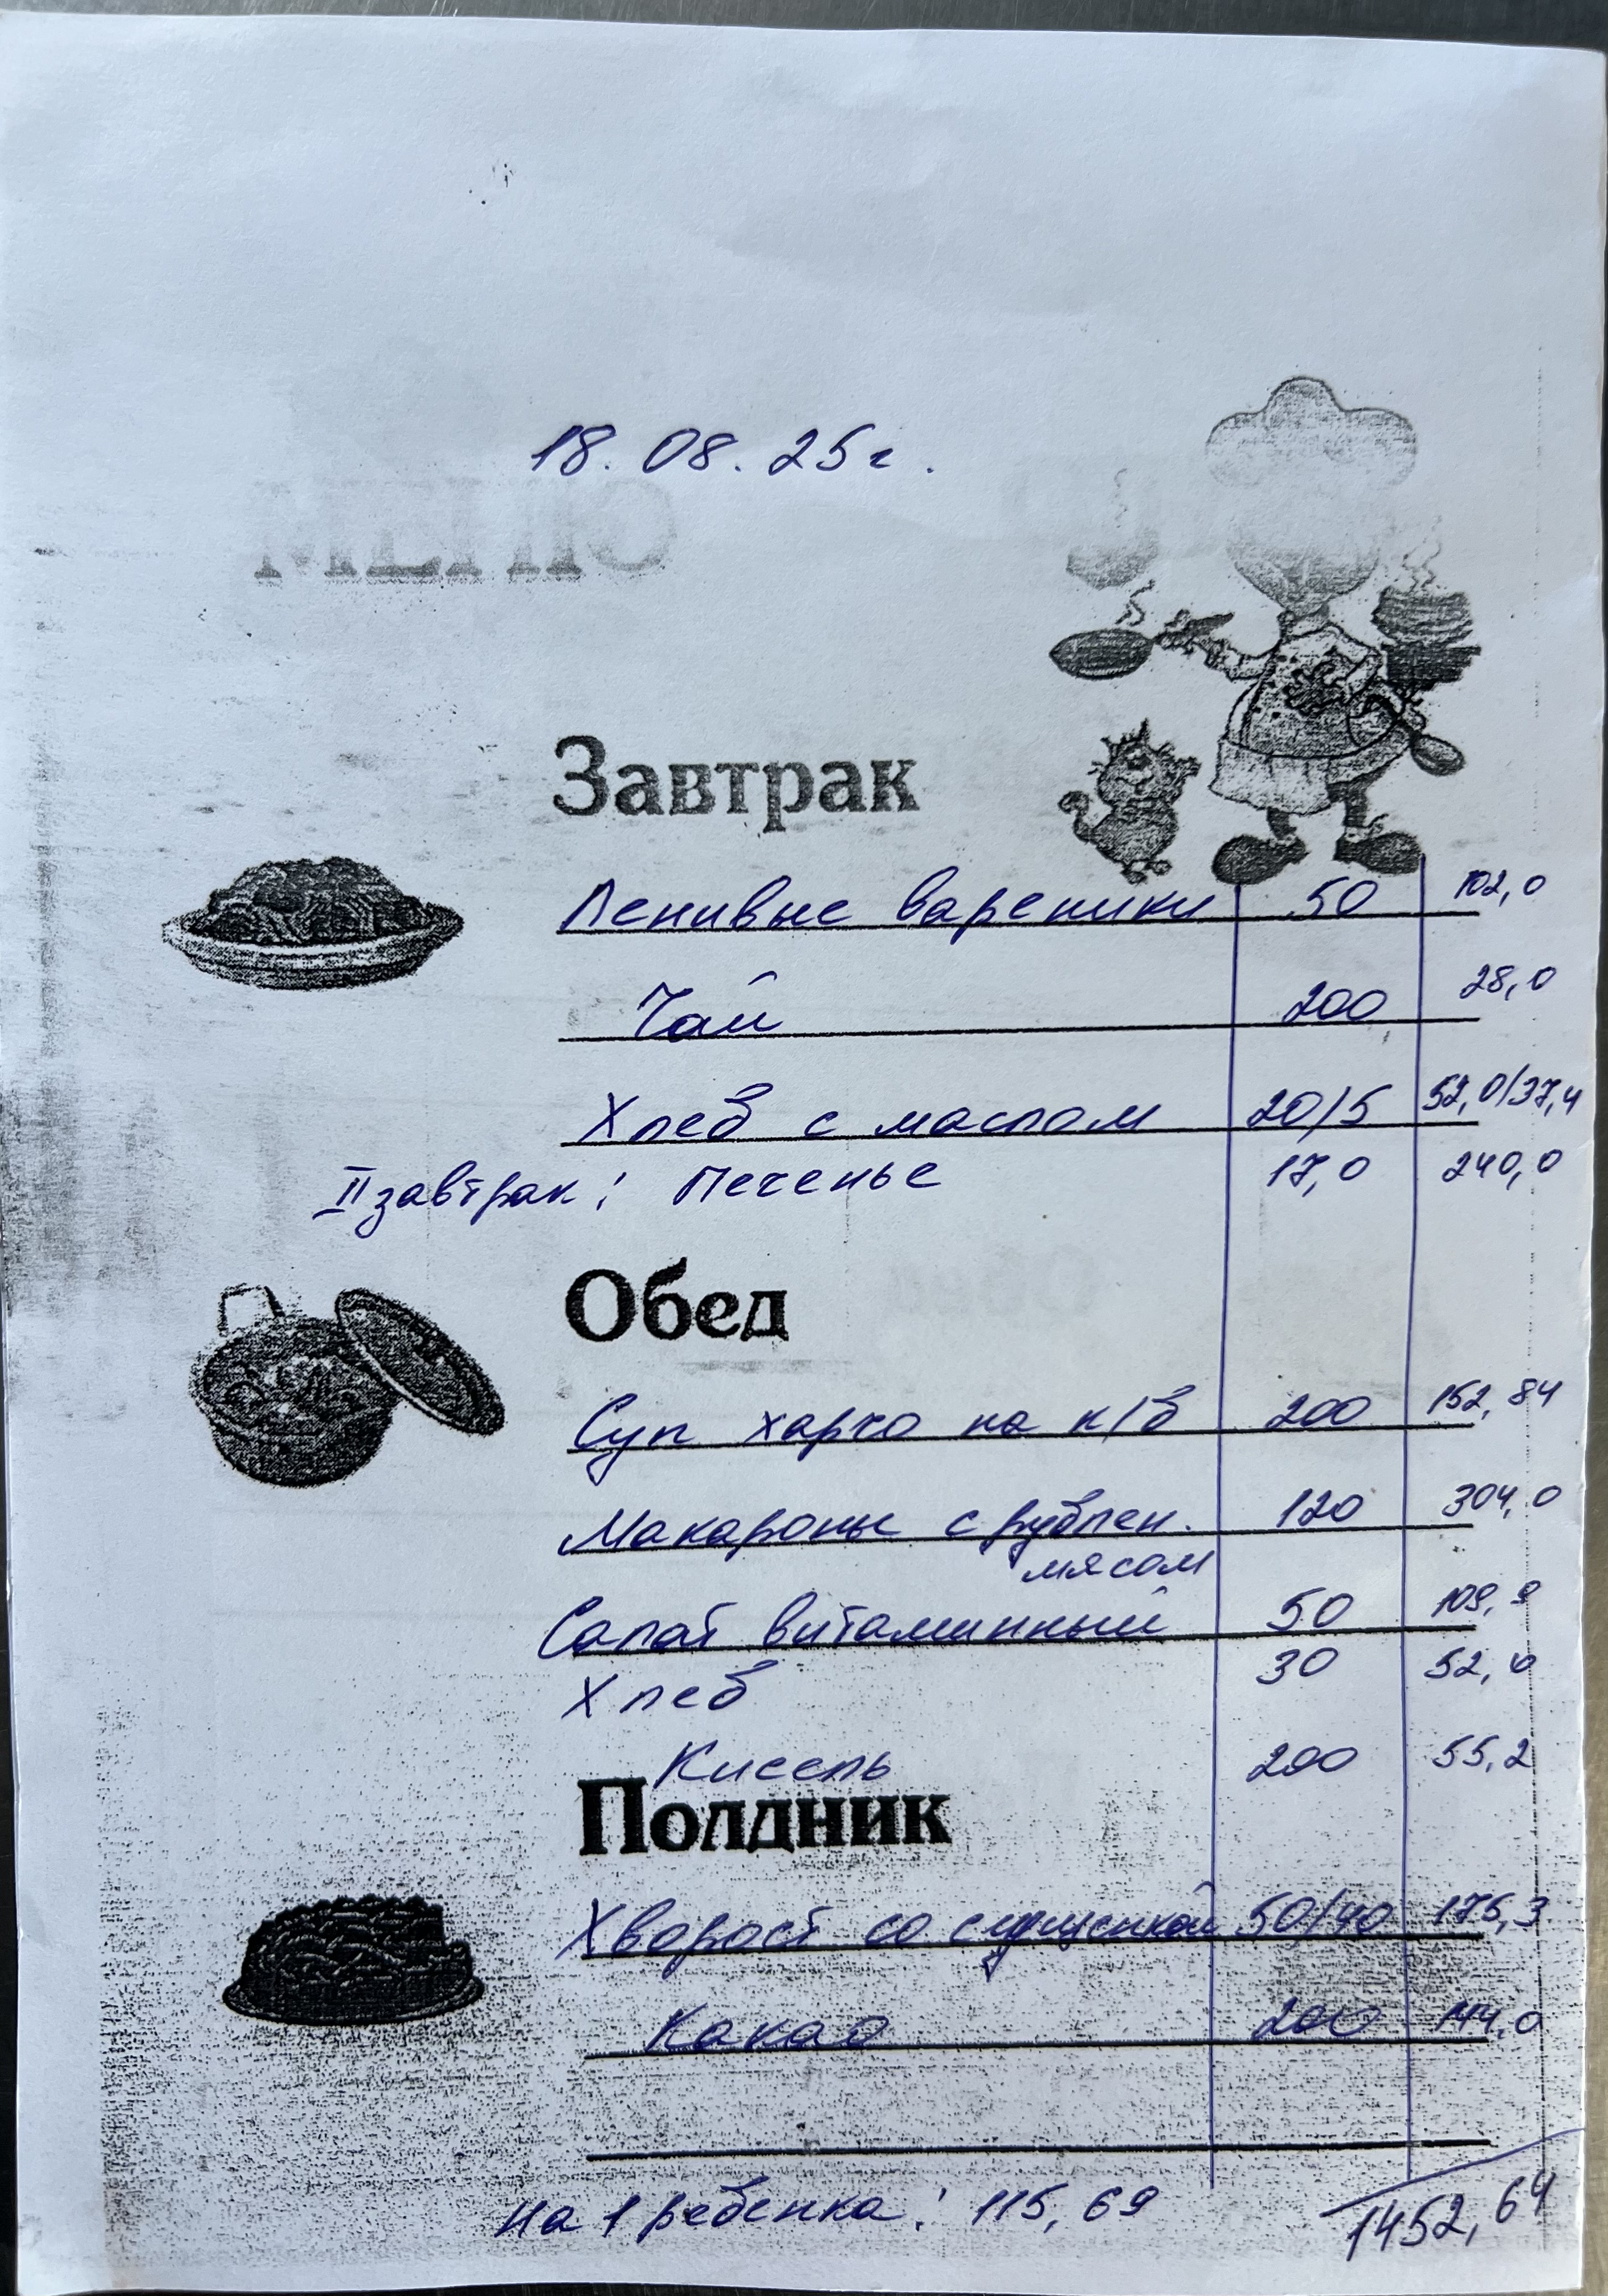 18.08.25г.
МЕНЮ
Завтрак
Ленивые вареники 50 102,0
Чай 200 28,0
Хлеб с маслом 20/5 52,0/37,4
II завтрак: Печенье 17,0 240,0
Обед
Суп харчо на к/б 200 152,84
Макароны с рублен. 120 304,0
мясом
Салат витаминный 50 109,9
Хлеб 30 52,0
Кисель 200 55,2
Полдник
Хворост со сгущенкой 50/40 175,3
Какао 200 144,0
На 1 ребенка: 115,69 1452,64